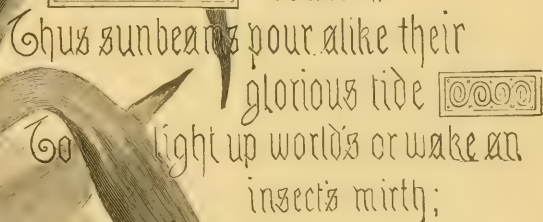 Thus sunbeams pour alike their
glorious tide
To light up world's or wake an
insect's mirth;